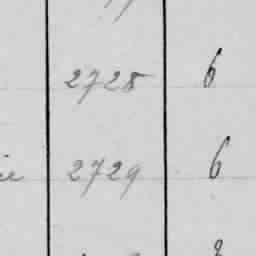 2728 6
2729 6